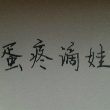 蛋疼滴娃